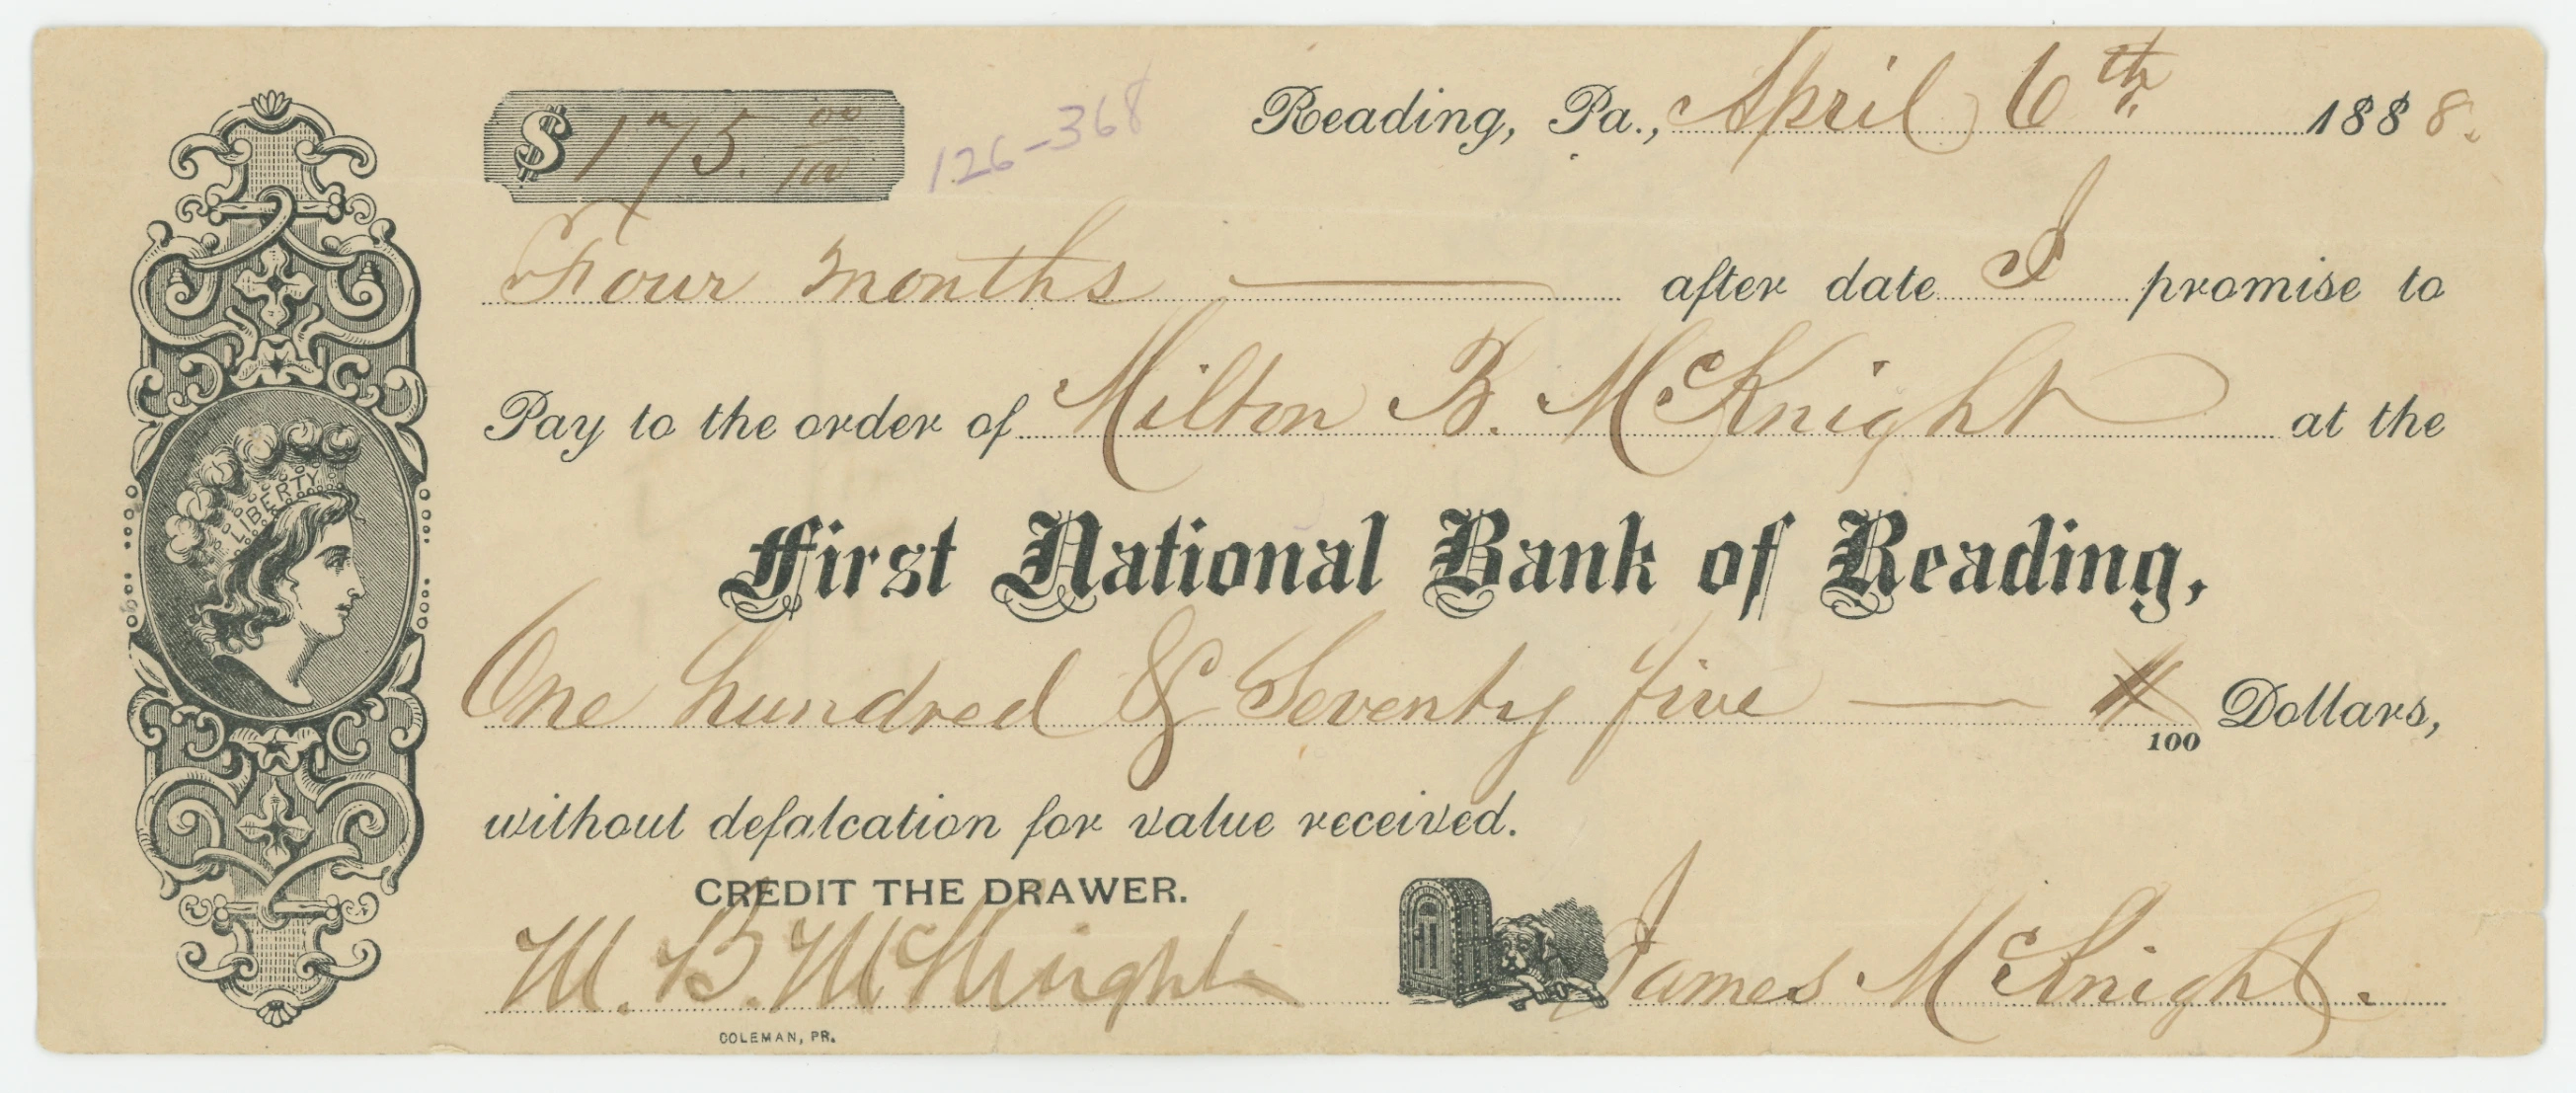 $ 175. 00/100
126-368
Reading, Pa., April 6th 1888.
Four months after date I promise to
Pay to the order of Milton B. McKnight at the
LIBERTY
First National Bank of Reading,
One hundred & Seventy five /100 Dollars,
without defalcation for value received.
CREDIT THE DRAWER.
M. B. McKnight James McKnight.
COLEMAN, PR.